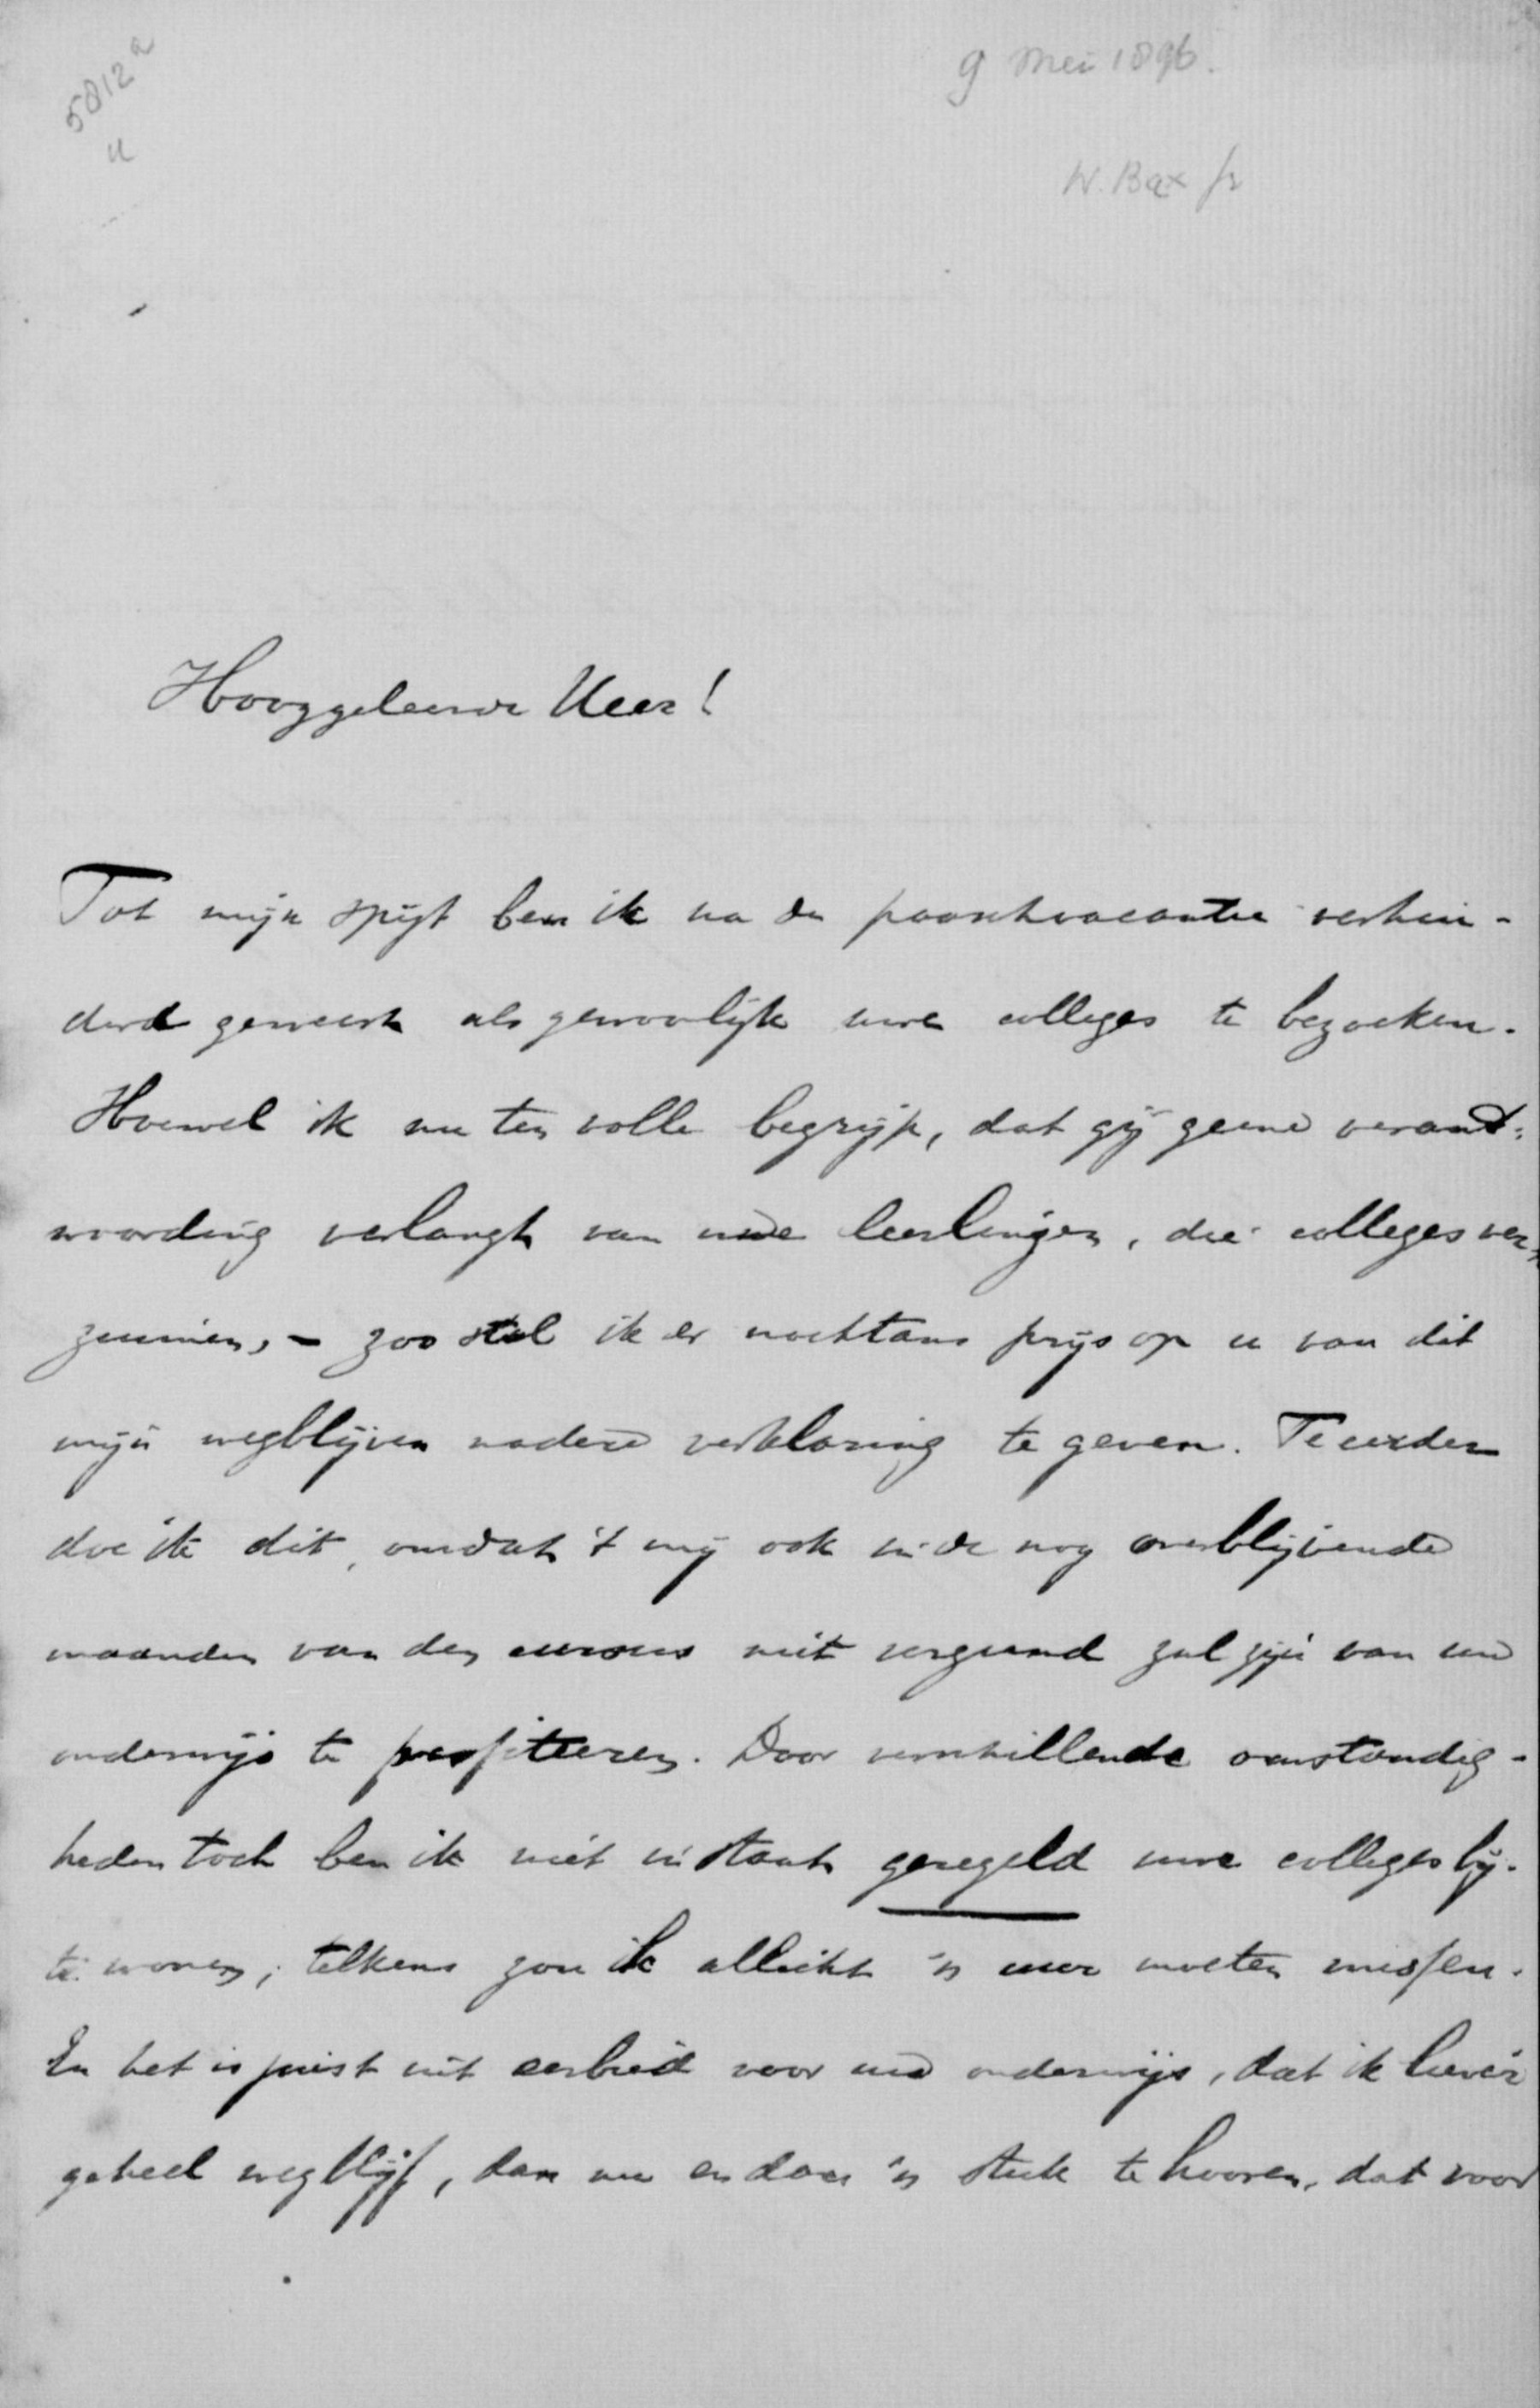 5812 a
u
9 Mei 1896.
W. Bax Jr
Hooggeleerde Heer!
Tot mijn spijt ben ik na de paaschvacantie verhin-
derd geweest als gewoonlijk uwe colleges te bezoeken.
Hoewel ik nu ten volle begrijp, dat gij geene verant-
woording verlangt van uwe leerlingen, die colleges ver-
zuimen, - zoo stel ik er nochtans prijs op u van dit
mijn wegblijven nadere verklaring te geven. Te eerder
doe ik dit, omdat 't mij ook in de nog overblijvende
maanden van den cursus niet vergund zal zijn van uw
onderwijs te profiteeren. Door verschillende omstandig-
heden toch ben ik niet in staat geregeld uwe colleges bij-
te wonen; telkens zou ik allicht 'n uur moeten missen.
En het is juist uit eerbied voor uw onderwijs, dat ik liever
geheel wegblijf, dan nu en dan 'n stuk te hooren, dat voor